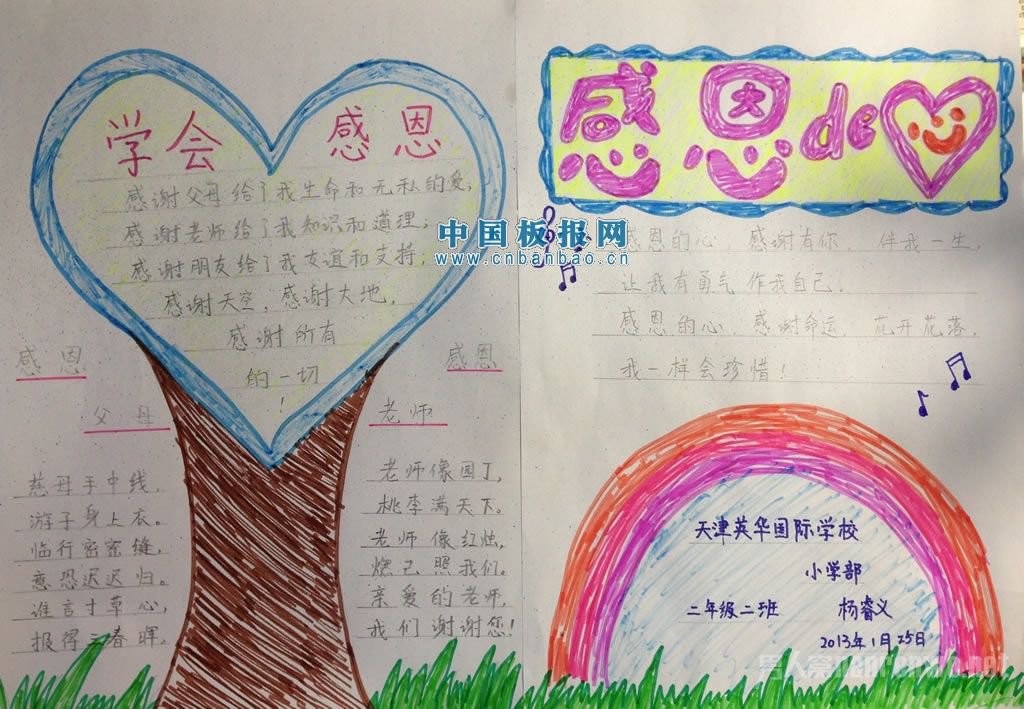 学会 感恩
感谢父母给了我生命和无私的爱，
感谢老师给了我知识和道理；
感谢朋友给了我友谊和支持；
感谢天空，感谢大地，
感谢所有
的一切
！
感恩
父母
慈母手中线，
游子身上衣。
临行密密缝，
意恐迟迟归。
谁言寸草心，
报得三春晖。
感恩
老师
老师像园丁，
桃李满天下。
老师像红烛，
燃己照我们。
亲爱的老师，
我们谢谢您！
中国板报网
www.cnbanbao.cn
感恩de
感恩的心，感谢有你，伴我一生，
让我有勇气作我自己。
感恩的心，感谢命运，花开花落，
我一样会珍惜！
天津英华国际学校
小学部
二年级二班 杨睿义
2013年1月25日